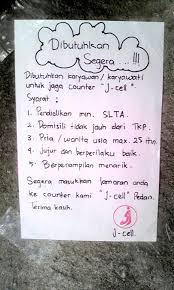 Dibutuhkan
Segera ...!!!
Dibutuhkan karyawan/karyawati
untuk jaga counter "J-cell".
Syarat :
1. Pendidikan min. SLTA.
2. Domisili tidak jauh dari TKP.
3. Pria/wanita usia max. 25 thn.
4. Jujur dan berperilaku baik.
5. Berpenampilan menarik.
Segera masukkan lamaran anda
ke counter kami "J-cell" Pedan.
Terima kasih.
J-cell.